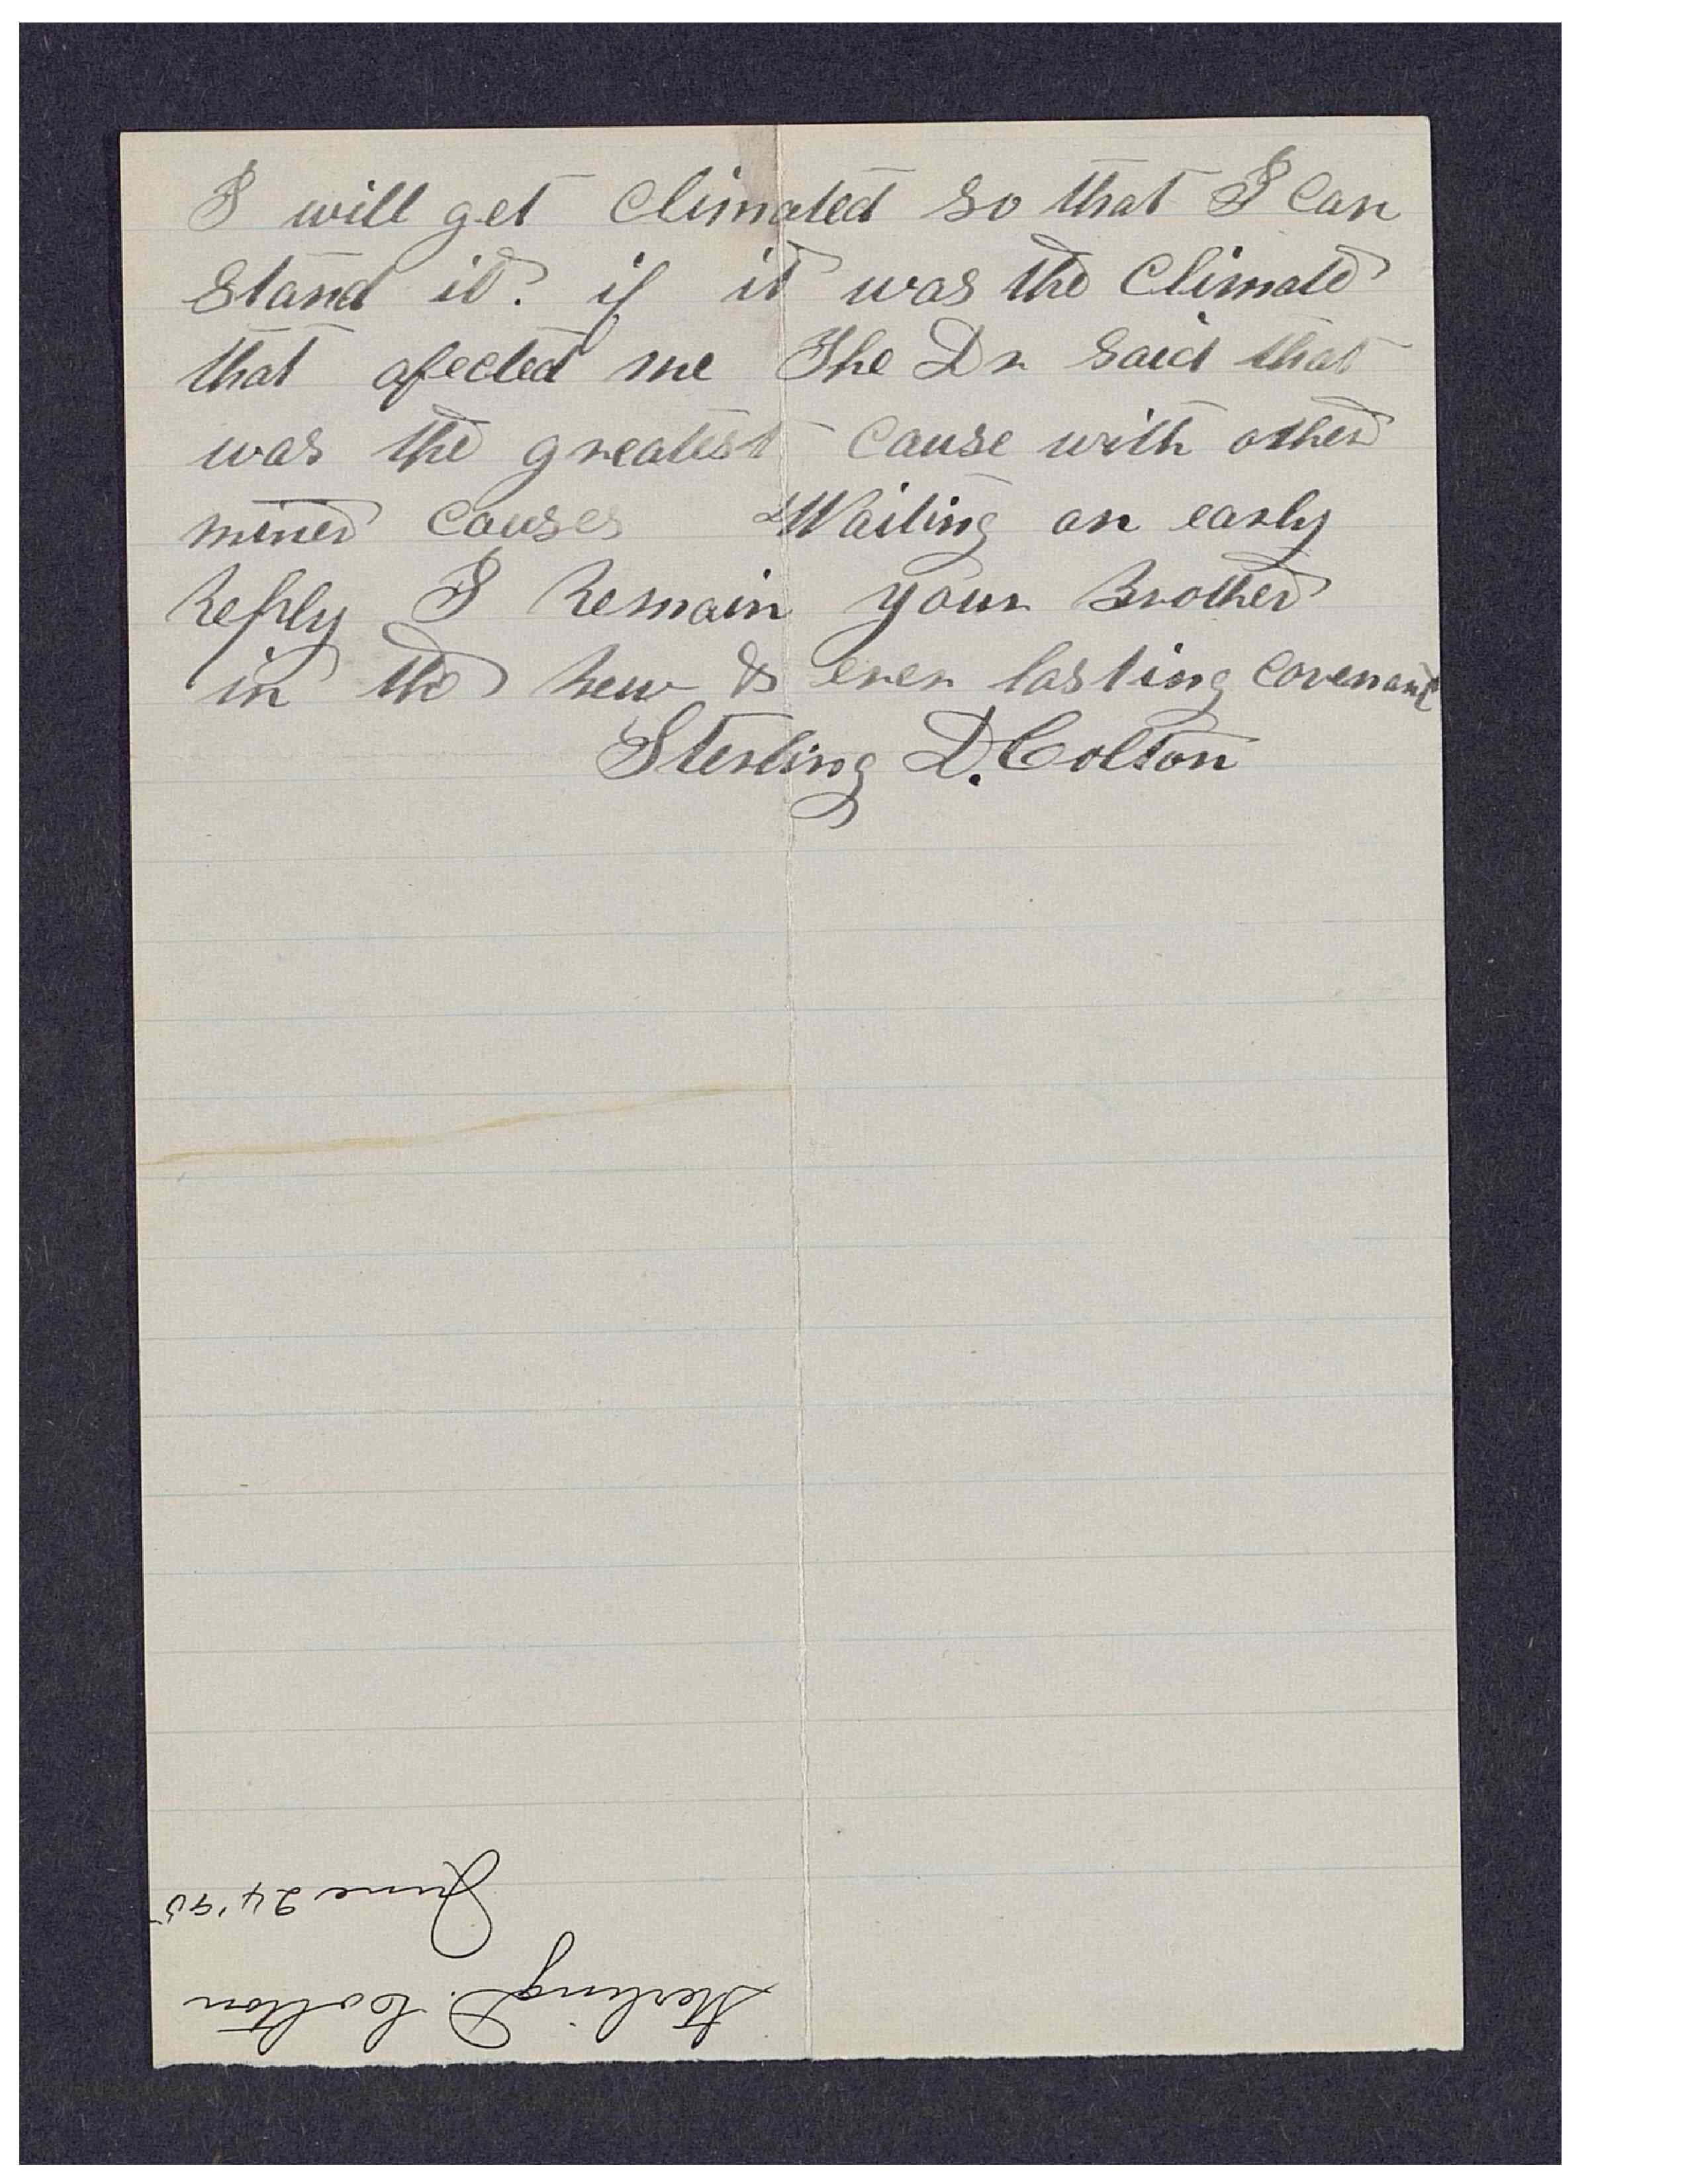 I will get Climated so that I Can
Stand it. if it was the Climate
that afected me The Dr Said that
was the greatest Cause with other
miner Causes Waiting an early
Reply I Remain your Brother
in the New & ever lasting Covenant
Sterling D. Colton
Sterling D. Colton
June 24 '95